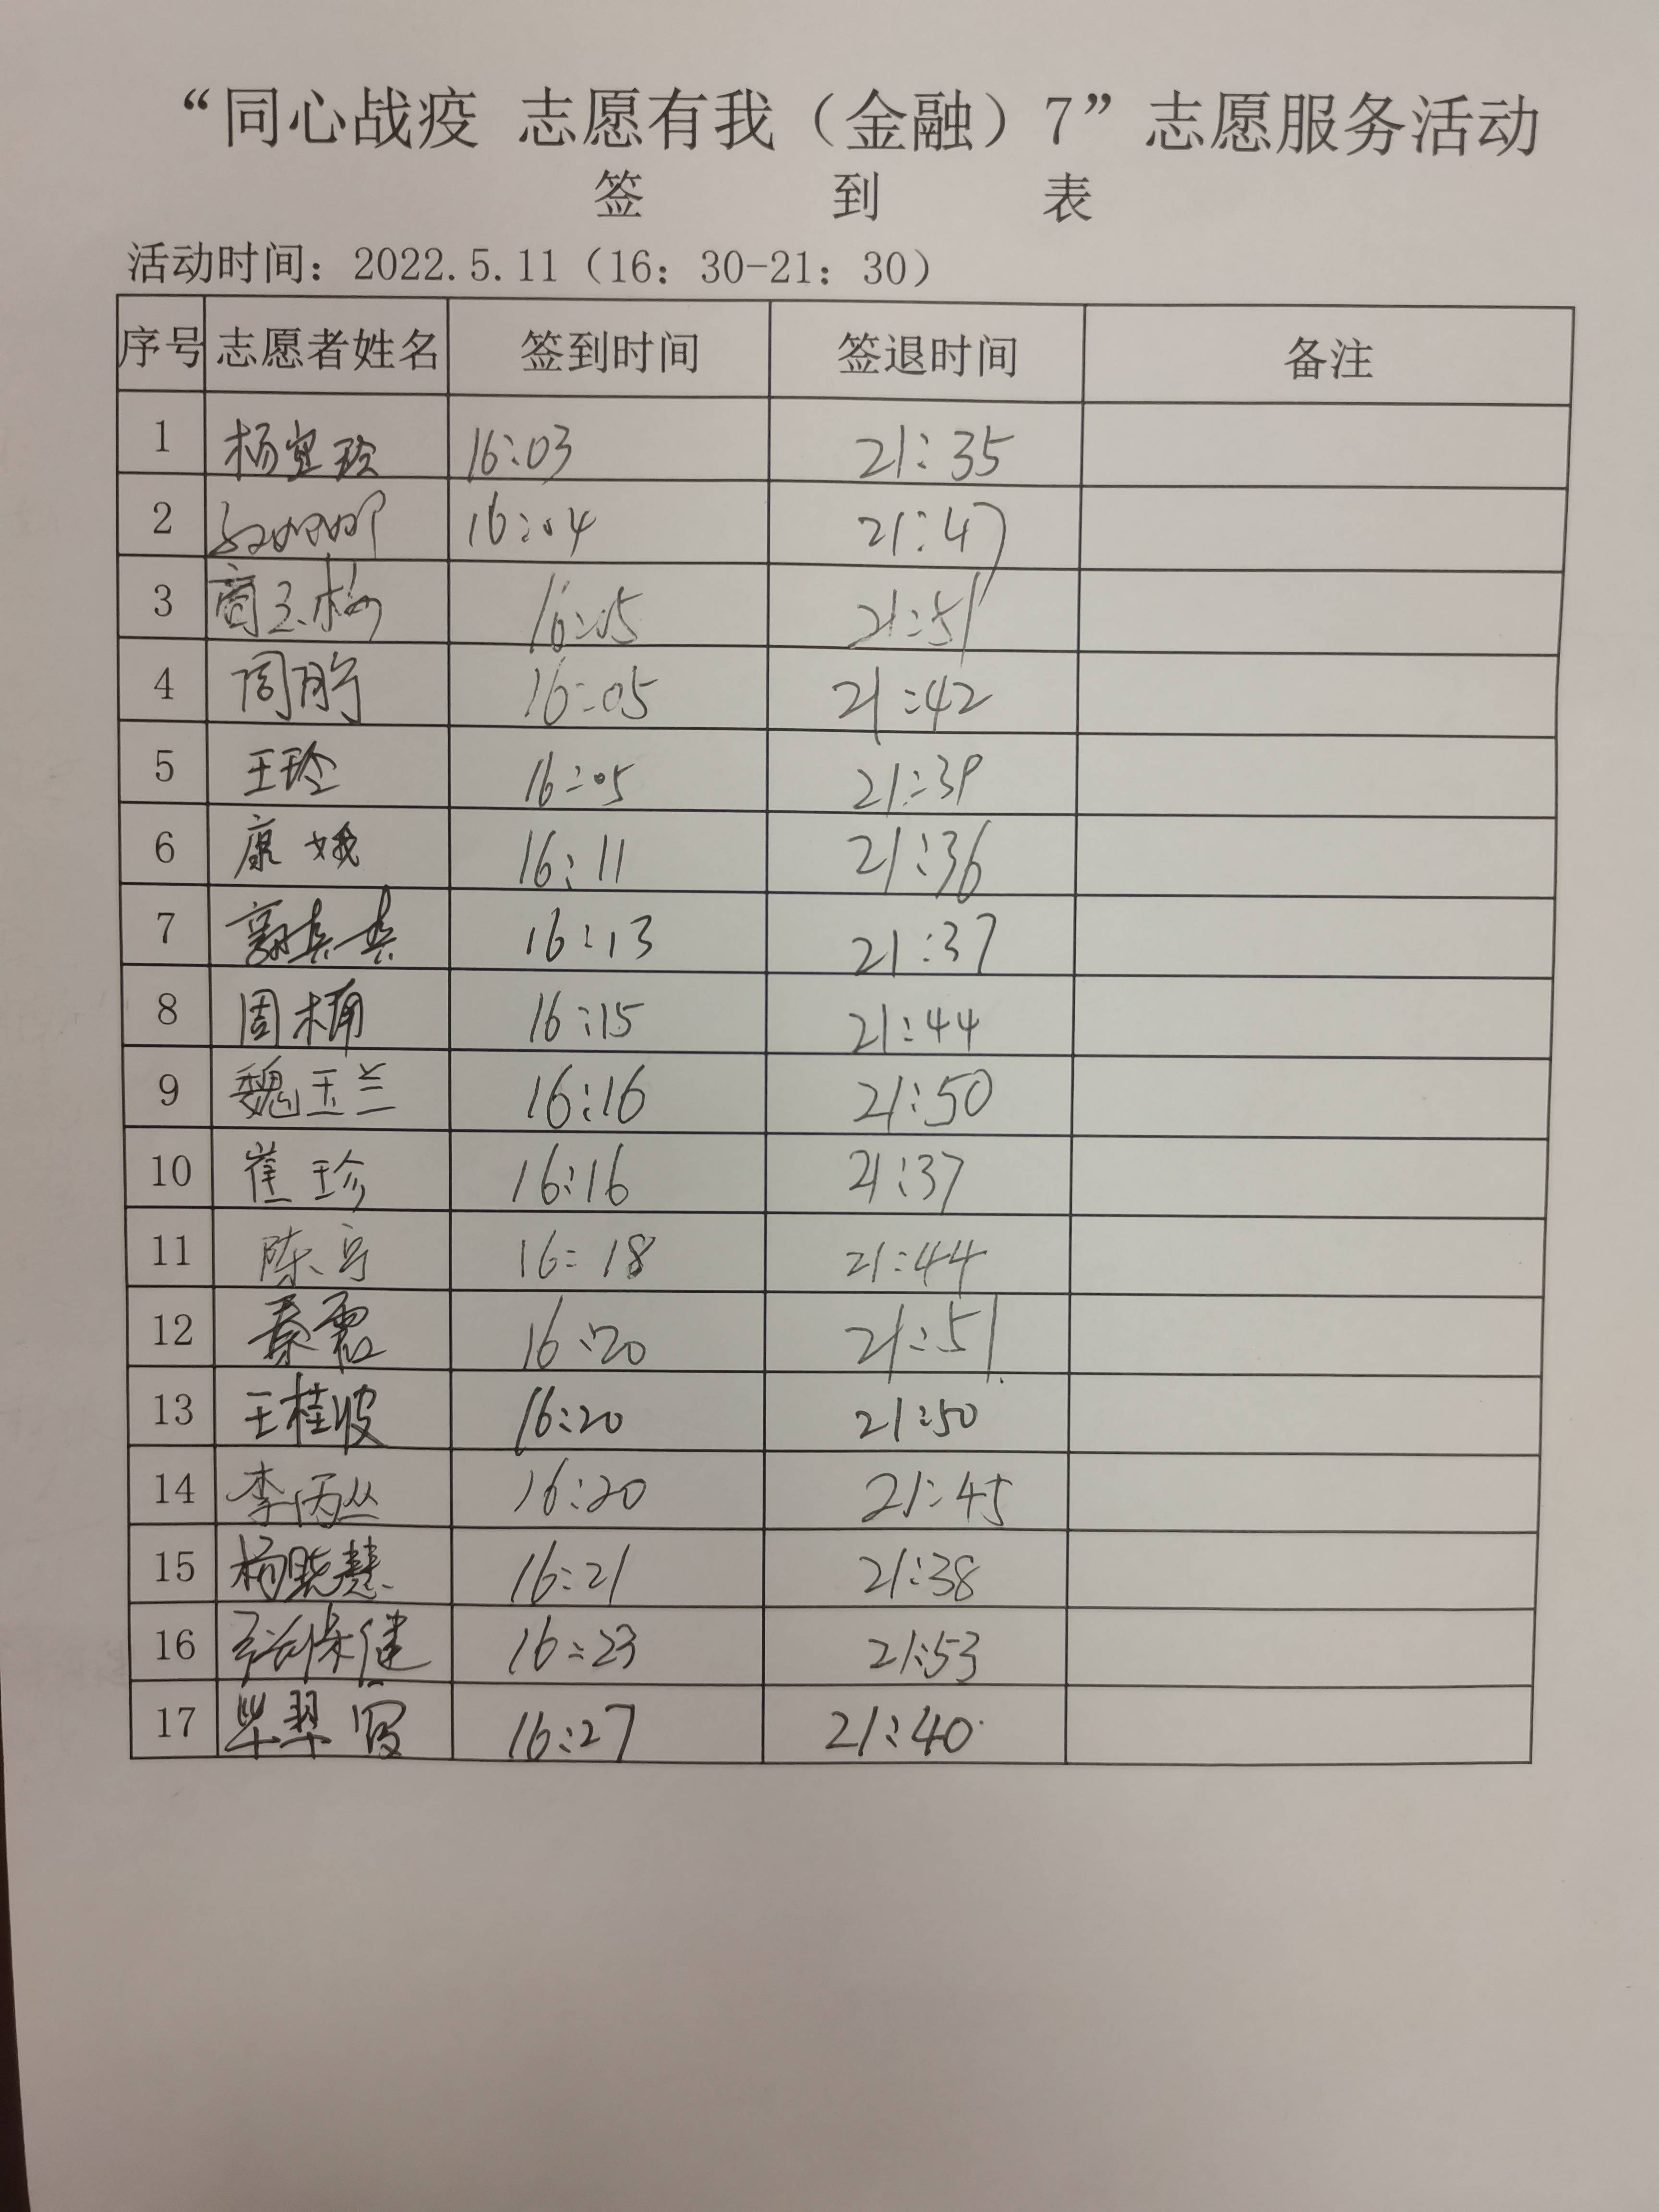 “同心战疫 志愿有我（金融）7”志愿服务活动
签 到 表
活动时间：2022.5.11（16：30-21：30）
序号 志愿者姓名 签到时间 签退时间 备注
1 杨宜玲 16:03 21:35
2 16:04 21:47
3 商玉梅 16:05 21:51
4 周 16:05 21:42
5 王玲 16:05 21:39
6 康娥 16:11 21:36
7 16:13 21:37
8 周楠 16:15 21:44
9 魏玉兰 16:16 21:50
10 崔珍 16:16 21:37
11 陈 16:18 21:44
12 秦震 16:20 21:51
13 王桂波 16:20 21:50
14 李丙丛 16:20 21:45
15 杨晓慧 16:21 21:38
16 张保健 16:23 21:53
17 毕翠 16:27 21:40